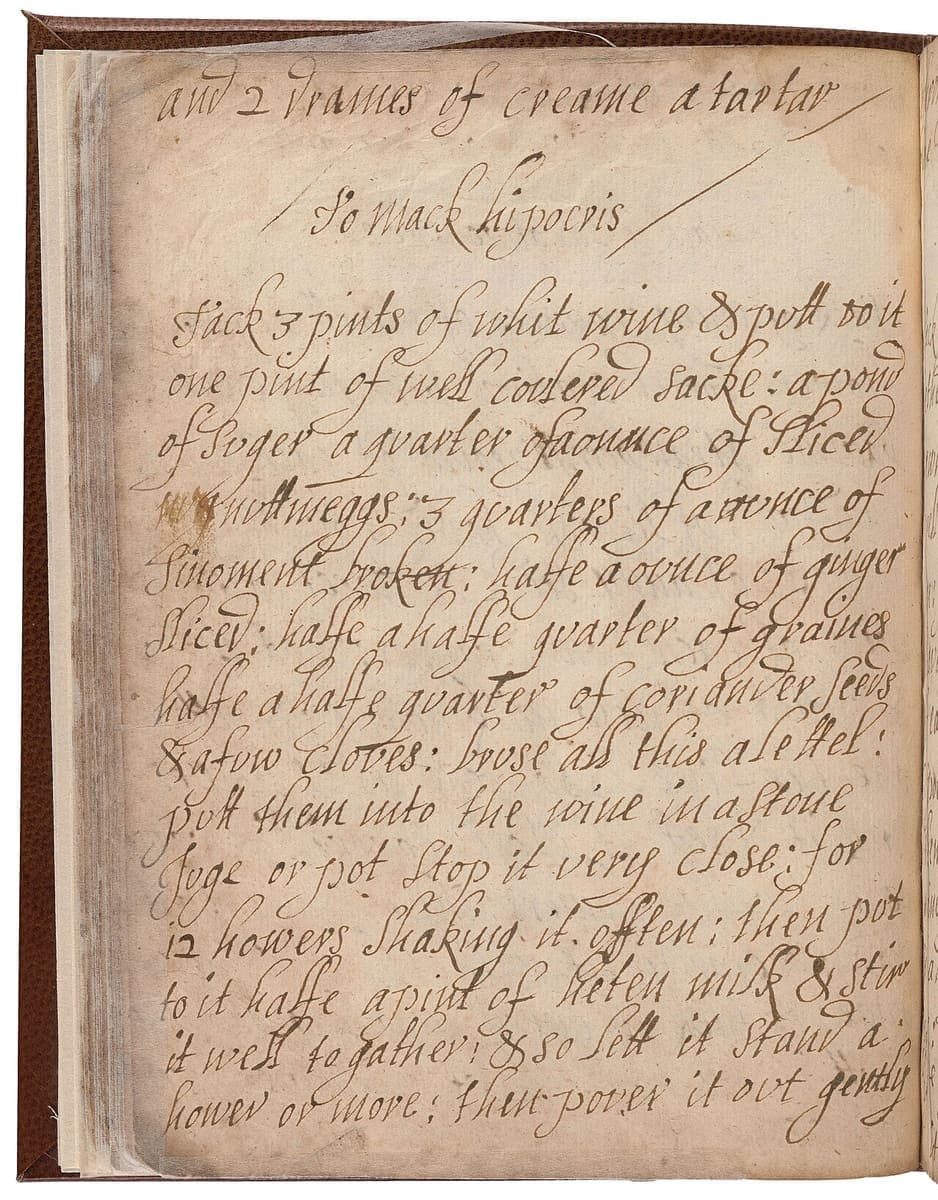 and 2 drames of creame a tartar
To mack hipocris
Tack 3 pints of whit wine & putt to it
one pint of well coolered sacke: a pond
of suger a quarter of a ounce of sliced
nuttmeggs: 3 quarters of a ounce of
sinoment broken: halfe a ounce of ginger
sliced: halfe a halfe quarter of graines
halfe a halfe quarter of coriander seeds
& a fuw cloves: bruse all this a lettel:
putt them into the wine in a stone
Juge or pot stop it very close: for
12 howers shaking it often: then put
to it halfe a pint of heten milk & stir
it well to gather: & so lett it stand a
hower or more: then power it out gently